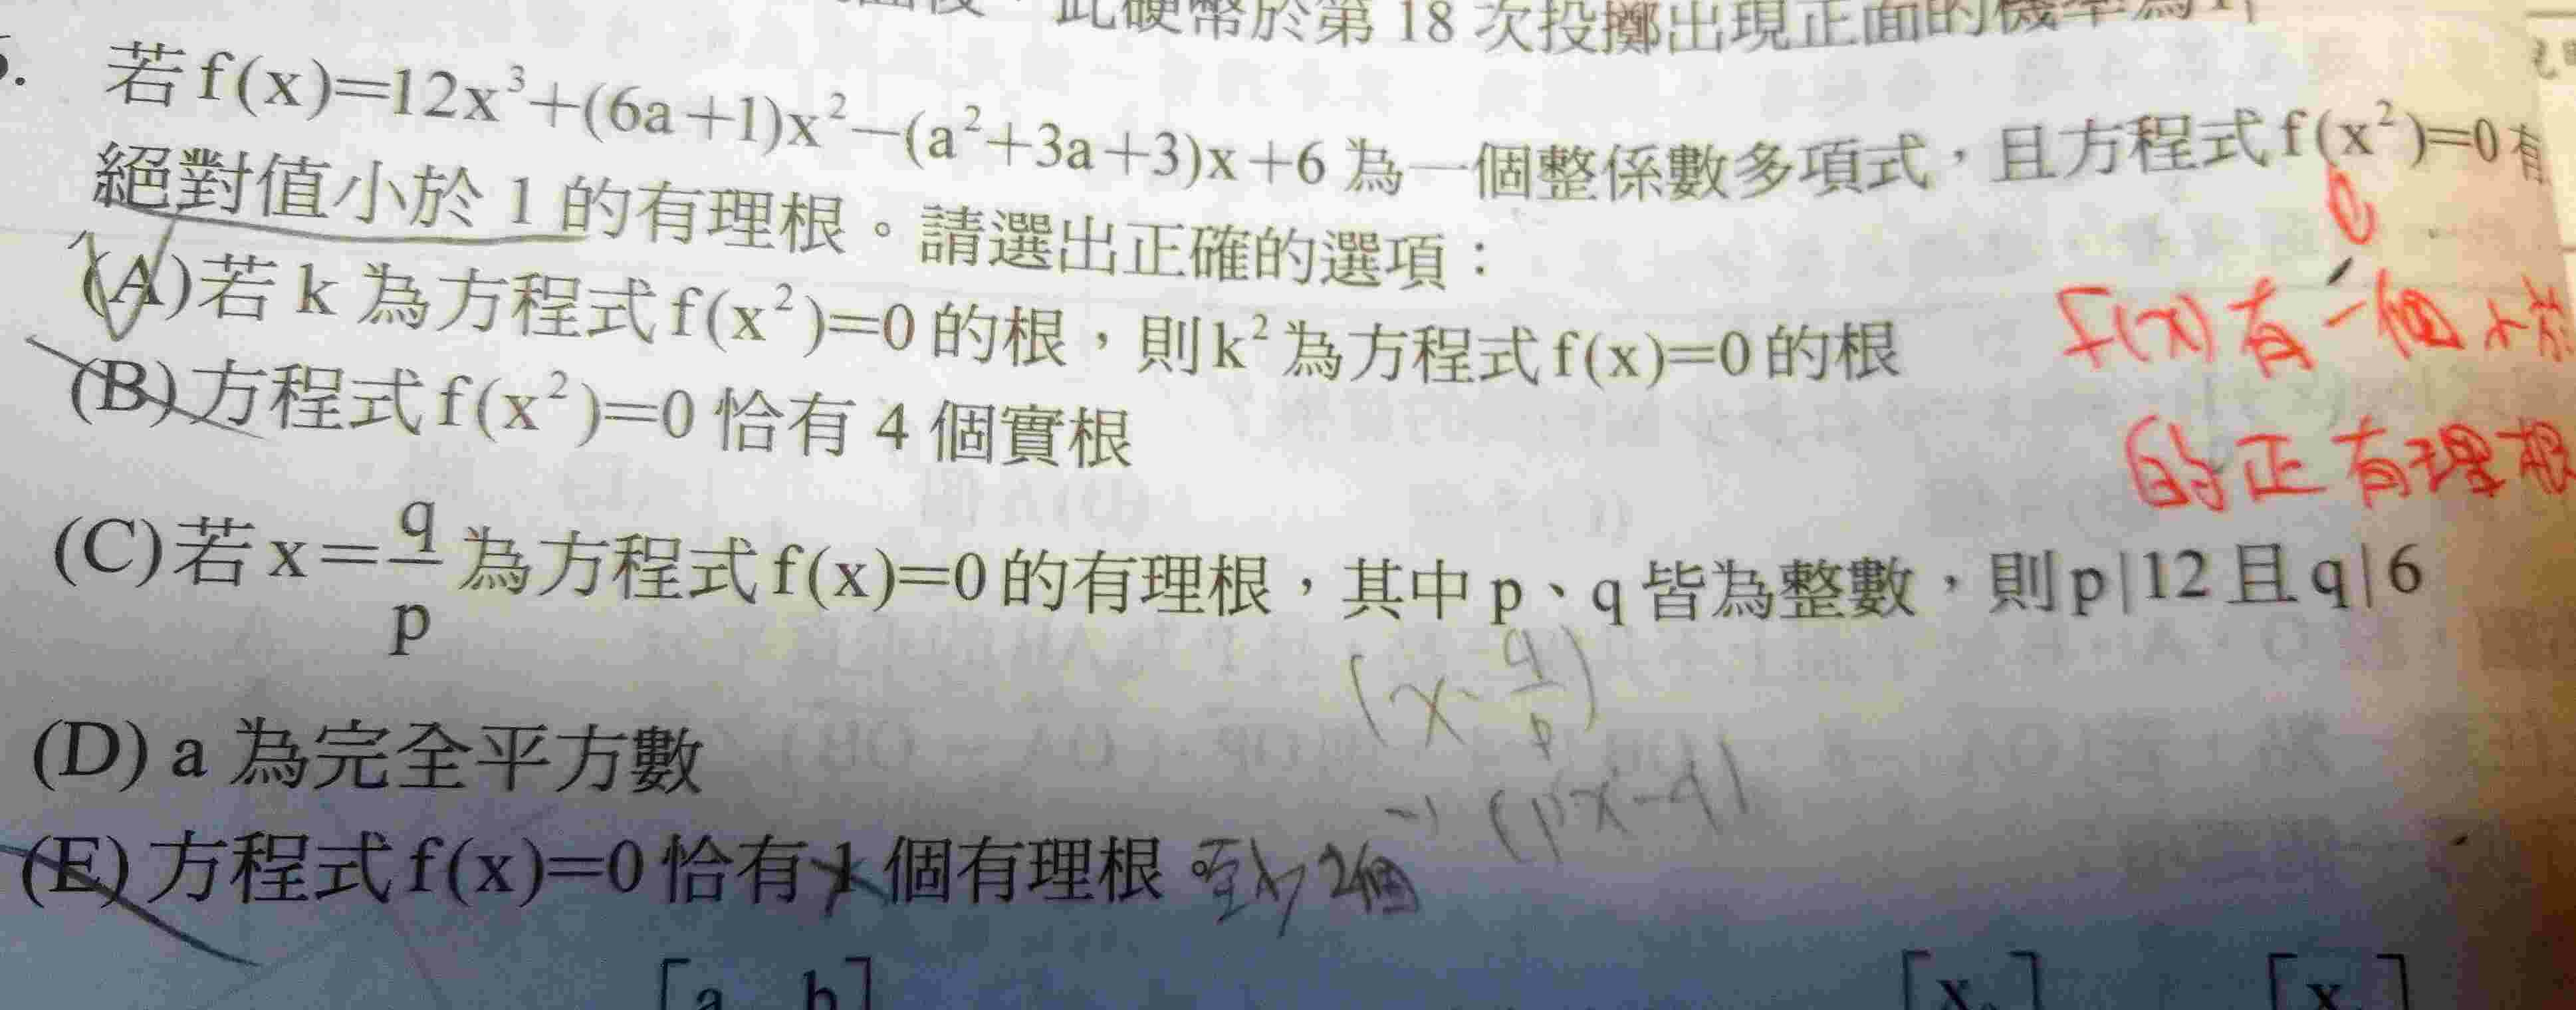 此硬幣於第 18 次投擲出現正面的機率為
若 f(x)=12x³+(6a+1)x²−(a²+3a+3)x+6 為一個整係數多項式，且方程式 f(x²)=0 有
絕對值小於 1 的有理根。請選出正確的選項：
(A)若 k 為方程式 f(x²)=0 的根，則 k² 為方程式 f(x)=0 的根
f(x) 有一個小於
(B)方程式 f(x²)=0 恰有 4 個實根
的正有理根
(C)若 x=q/p 為方程式 f(x)=0 的有理根，其中 p、q 皆為整數，則 p|12 且 q|6
(x-q/p)
(D) a 為完全平方數
(px-q)
(E)方程式 f(x)=0 恰有 1 個有理根。
2個
[a b] [x ] [x ]